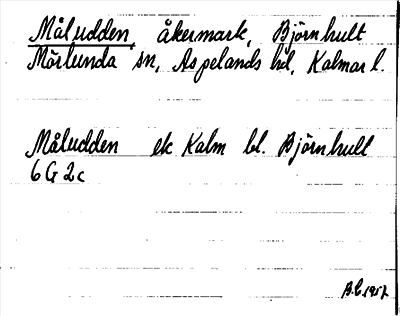 Måludden, åkermark, Björnhult
Mörlunda sn, Aspelands hd, Kalmar l.
Måludden ek Kalm bl. Björnhult
6 G 2c
B.C. 1957